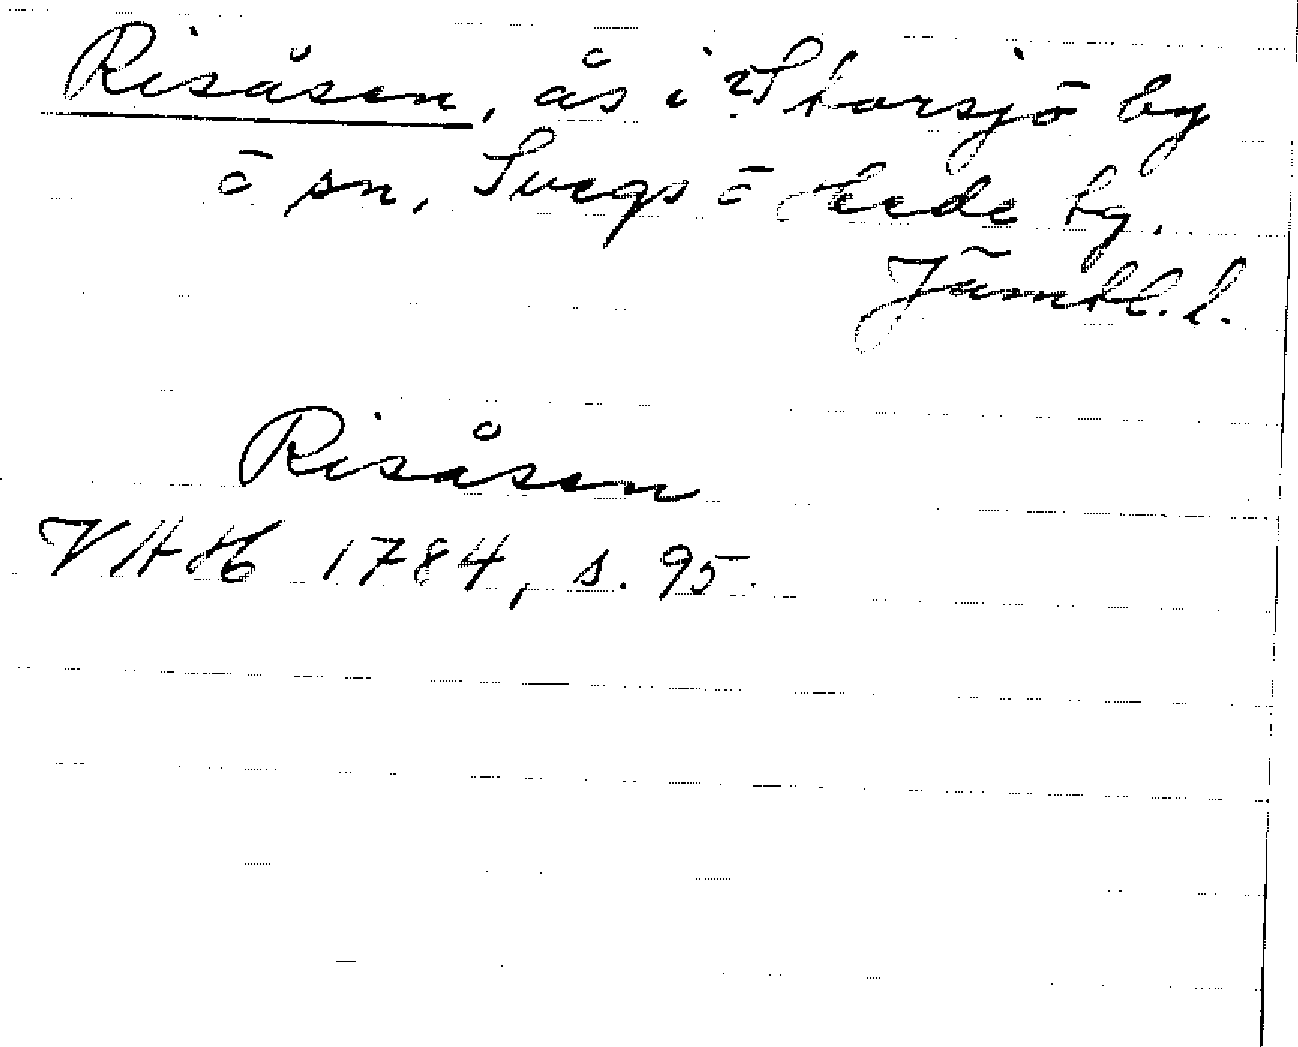 Risåsen, ås i ? Storsjö by
o sn, Svegs o Hede tg.
Jämtl. l.
Risåsen
VHH 1784, s. 95.